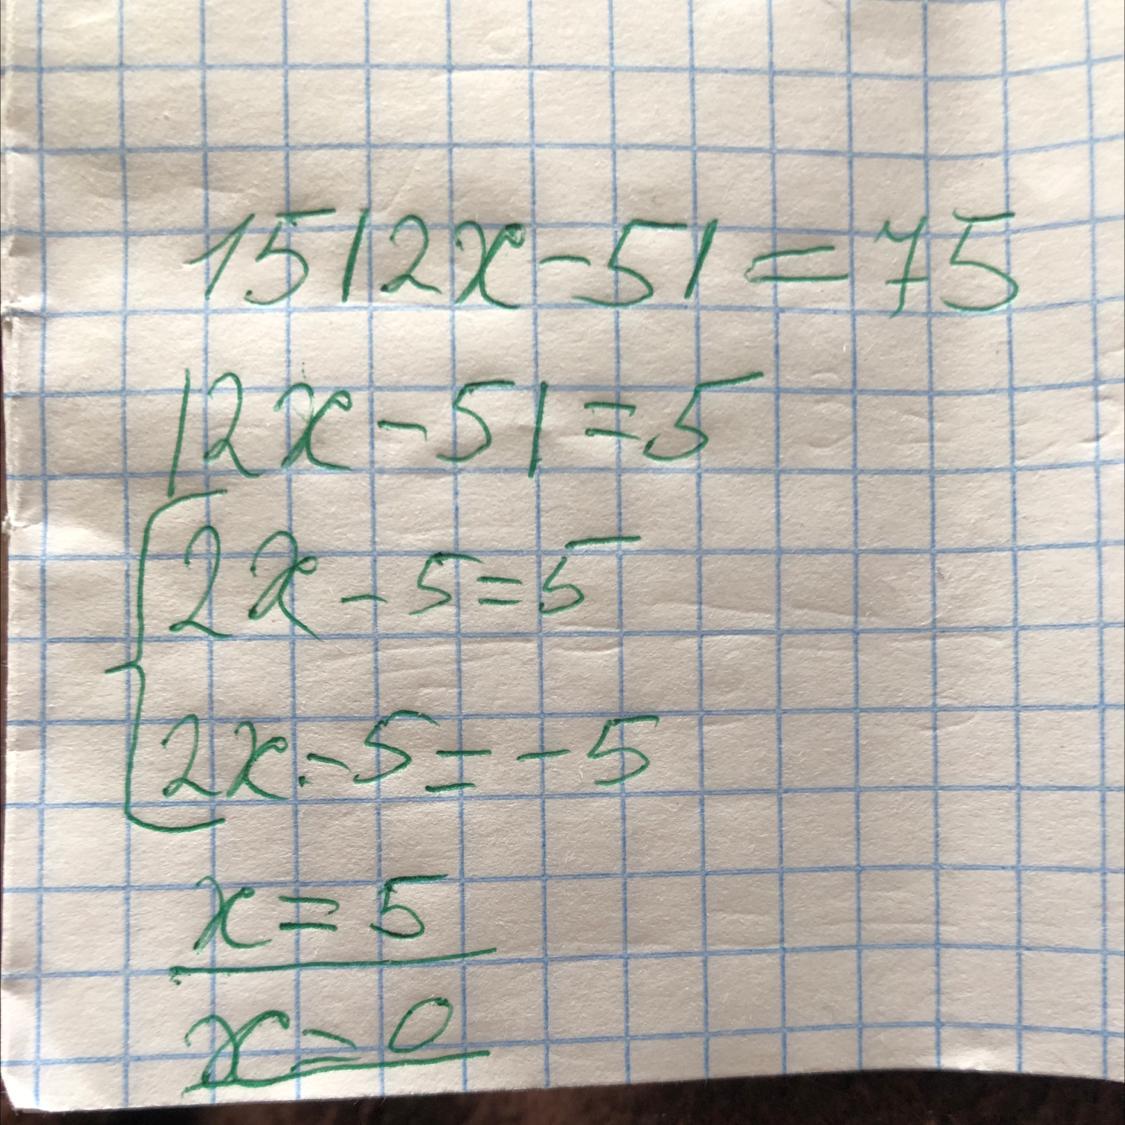 15|2x-5|=75
|2x-5|=5
2x-5=5
2x-5=-5
x=5
x=0